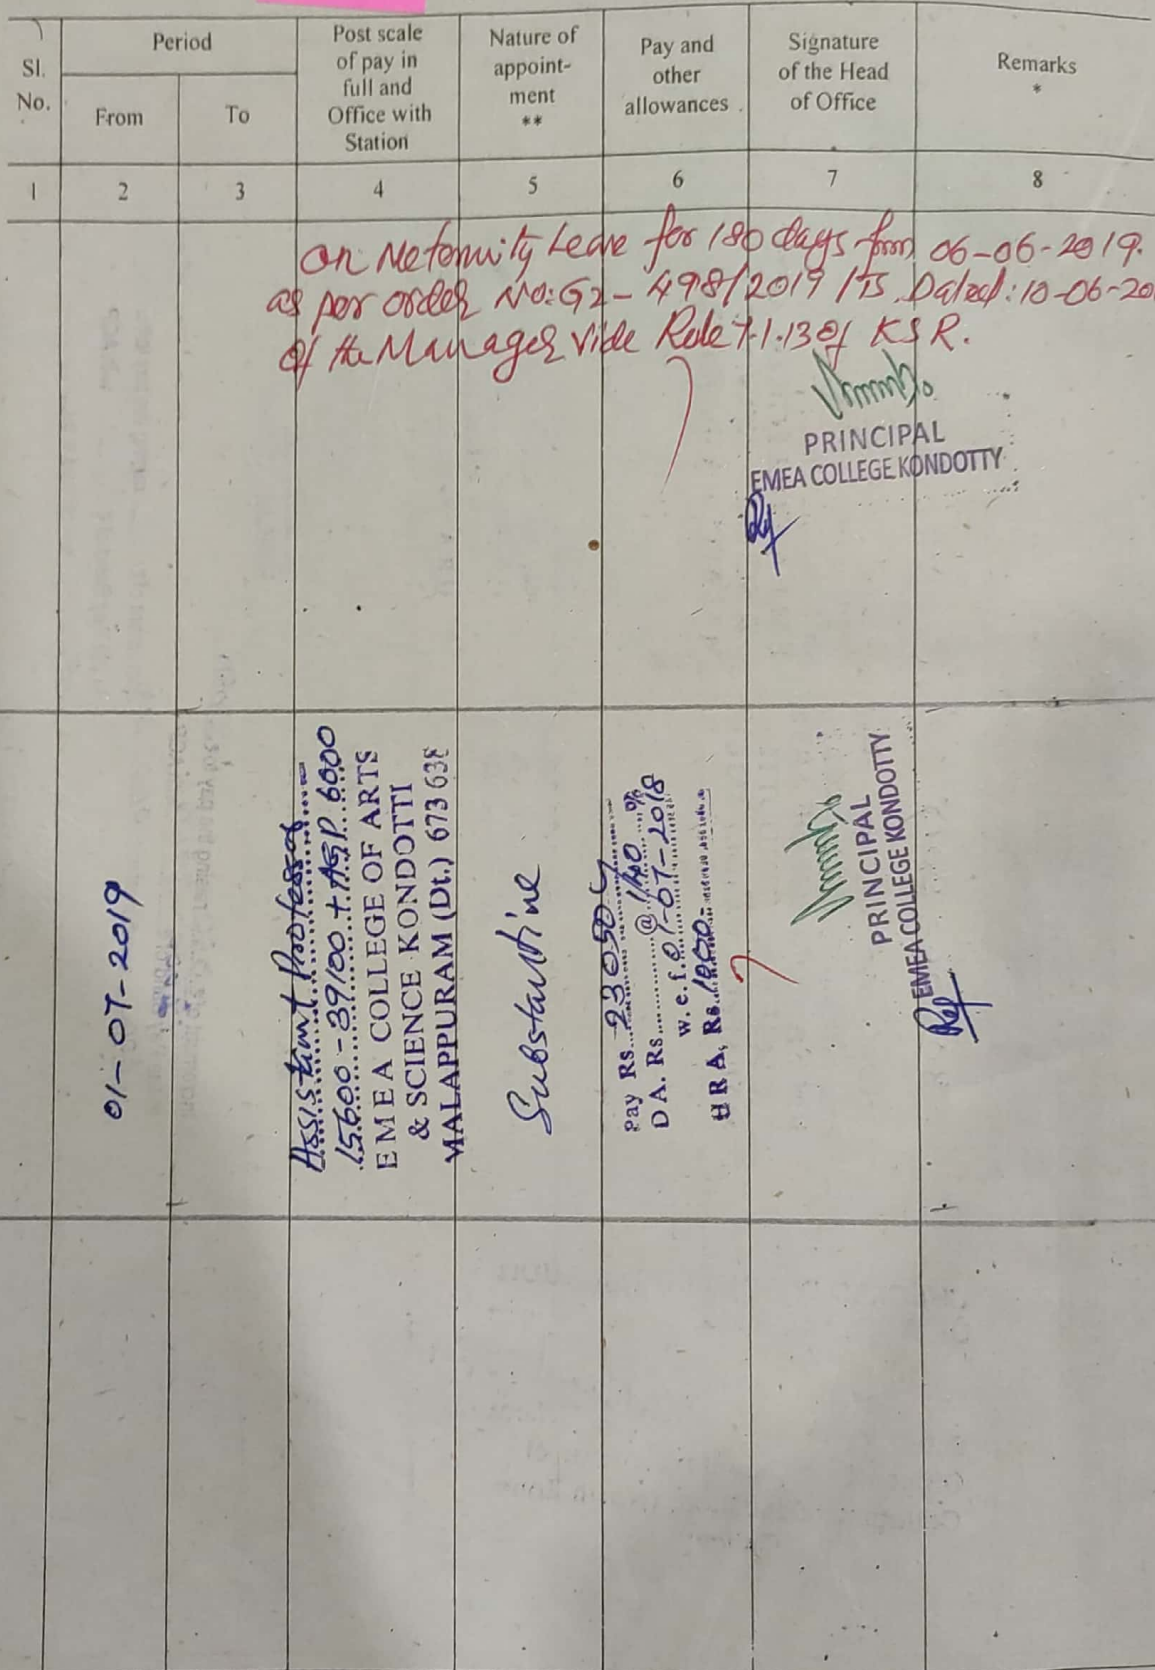 Sl.
No.
Period
From
To
Post scale
of pay in
full and
Office with
Station
Nature of
appoint-
ment
**
Pay and
other
allowances
Signature
of the Head
of Office
Remarks
*
1 2 3 4 5 6 7 8
On Meternuity Leave for 180 days from 06-06-2019.
as per order No: G2-498/2019/TS Dated: 10-06-20
of the Manager vide Rule 7.1.13 of KSR.
PRINCIPAL
EMEA COLLEGE KONDOTTY
01-07-2019
Assistant Professor
15600-39100 + AGP 6000
EMEA COLLEGE OF ARTS
& SCIENCE KONDOTTI
MALAPPURAM (Dt.) 673 638
Substantine
Pay Rs. 23050
D A. Rs. @ 140 %
w. e. f. 01-07-2018
H R A, Rs. 1000-
PRINCIPAL
EMEA COLLEGE KONDOTTY